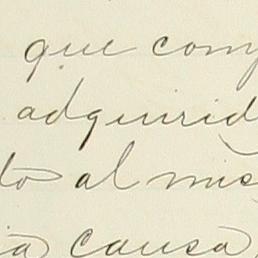 que comp
adquirid
to al mis
ia causa